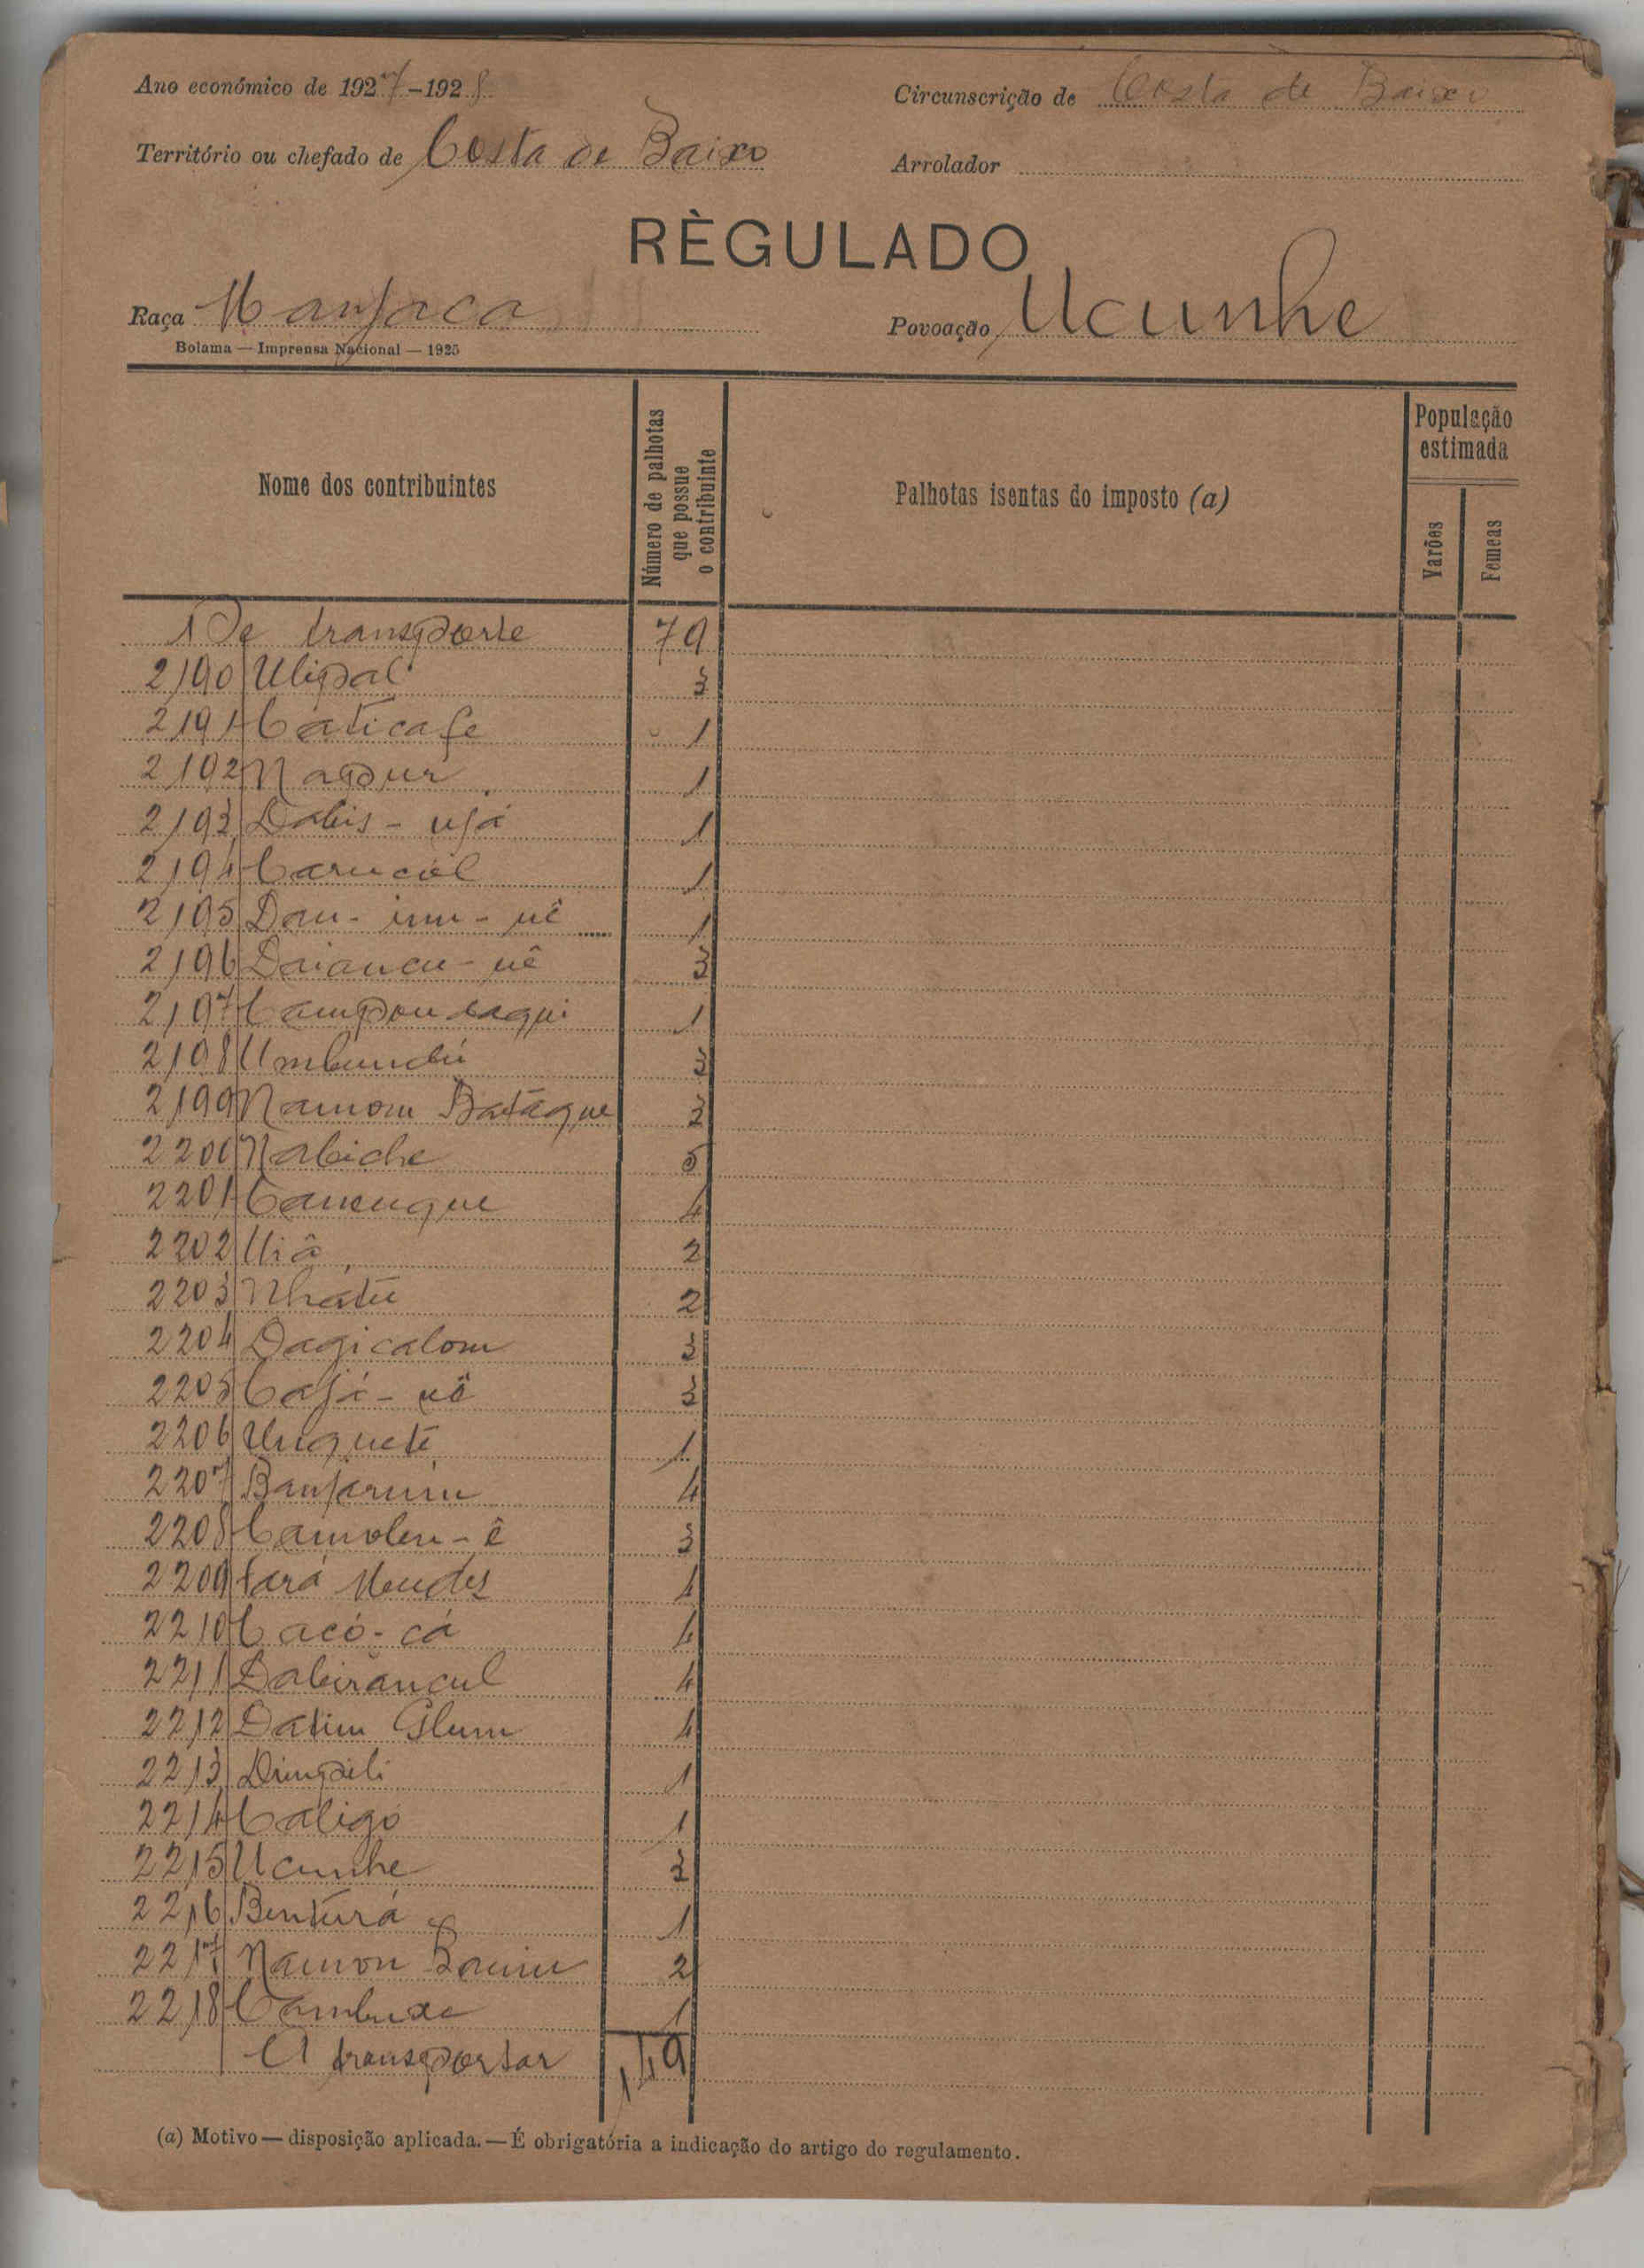 Ano económico de 1927-1928
Circunscrição de Costa de Baixo
Território ou chefado de Costa de Baixo
Arrolador
RÈGULADO
Raça Manjaca
Povoação Ucunhe
Bolama — Imprensa Nacional — 1925
Nome dos contribuintes
Número de palhotas que possue o contribuinte
Palhotas isentas do imposto (a)
População estimada
Varões
Femeas
De transporte 79
2190 Ulipal 3
2191 Caticafe 1
2192 Napur 1
2193 Dabis - ujá 1
2194 Carucol 1
2195 Dau - inu - uê 1
2196 Daiancu - uê 3
2197 Campou baqui 1
2198 Umbundú 3
2199 Namom Batáque 2
2200 Nabiche 5
2201 Camuque 4
2202 Uiâ 2
2203 Nhatú 2
2204 Dagicalom 3
2205 Cajá - uê 3
2206 Unqueté 1
2207 Banjarum 4
2208 Camolu - ê 3
2209 Fará Mendes 4
2210 Cacó - cá 4
2211 Dabirancul 4
2212 Datim Glum 4
2213 Dingili 1
2214 Caligo 1
2215 Ucunhe 3
2216 Benturá 1
2217 Namon 2
2218 Cambuxe 1
A transportar 149
(a) Motivo — disposição aplicada. — É obrigatória a indicação do artigo do regulamento.